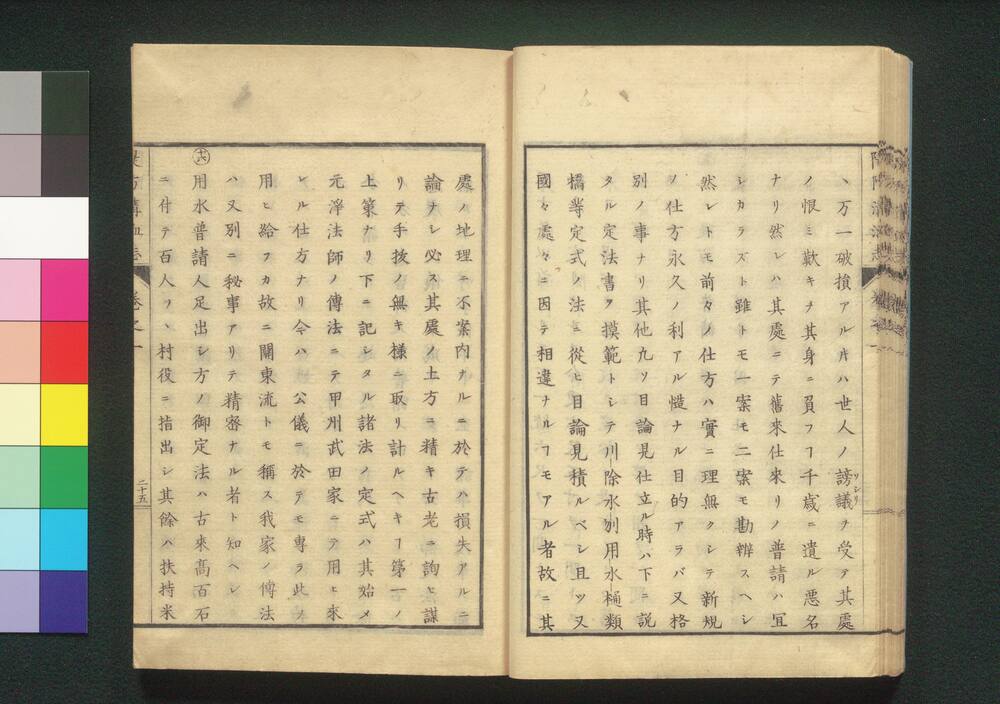 、万一破損アル片ハ世人ノ謗議ヲ受テ其處
ソシリ
ノ恨ミ歎キヲ其身ニ負フヿ千歳ニ遺ル悪名
ナリ然レハ其處ニテ舊來仕來リノ普請ハ冝
シカラズト雖トモ一案モ二案モ勘辨スヘシ
然レトモ前々ノ仕方ハ實ニ理無クシテ新規
ノ仕方永久ノ利アル慥ナル目的アラバ又格
別ノ事ナリ其他凢ソ目論見仕立ル時ハ下ニ説
タル定法書ヲ摸範トシテ川除水刎用水樋類
橋等定式ノ法ニ從ヒ目論見積ルベシ且ツ又
國々處々ニ因テ相違ナルヿモアル者故ニ其
處ノ地理ニ不案内ナルニ於テハ損失アルニ
論ナシ必ス其處ノ土方ニ精キ古老ニ詢ヒ謀
リテ手抜ノ無キ様ニ取リ計ルヘキヿ第一ノ
上策ナリ下ニ記シタル諸法ノ定式ハ其始メ
元浮法師ノ傳法ニテ甲州武田家ニテ用ヒ來
レル仕方ナリ今ハ公儀ニ於テモ專ラ此ヲ
用ヒ給フカ故ニ關東流トモ稱ス我家ノ傳法
ハ又別ニ秘事アリテ精密ナル者ト知ヘシ
㊅用水普請人足出シ方ノ御定法ハ古來高百石
ニ付テ百人ツヽ村役ニ指出シ其餘ハ扶持米
卷之一
二十五